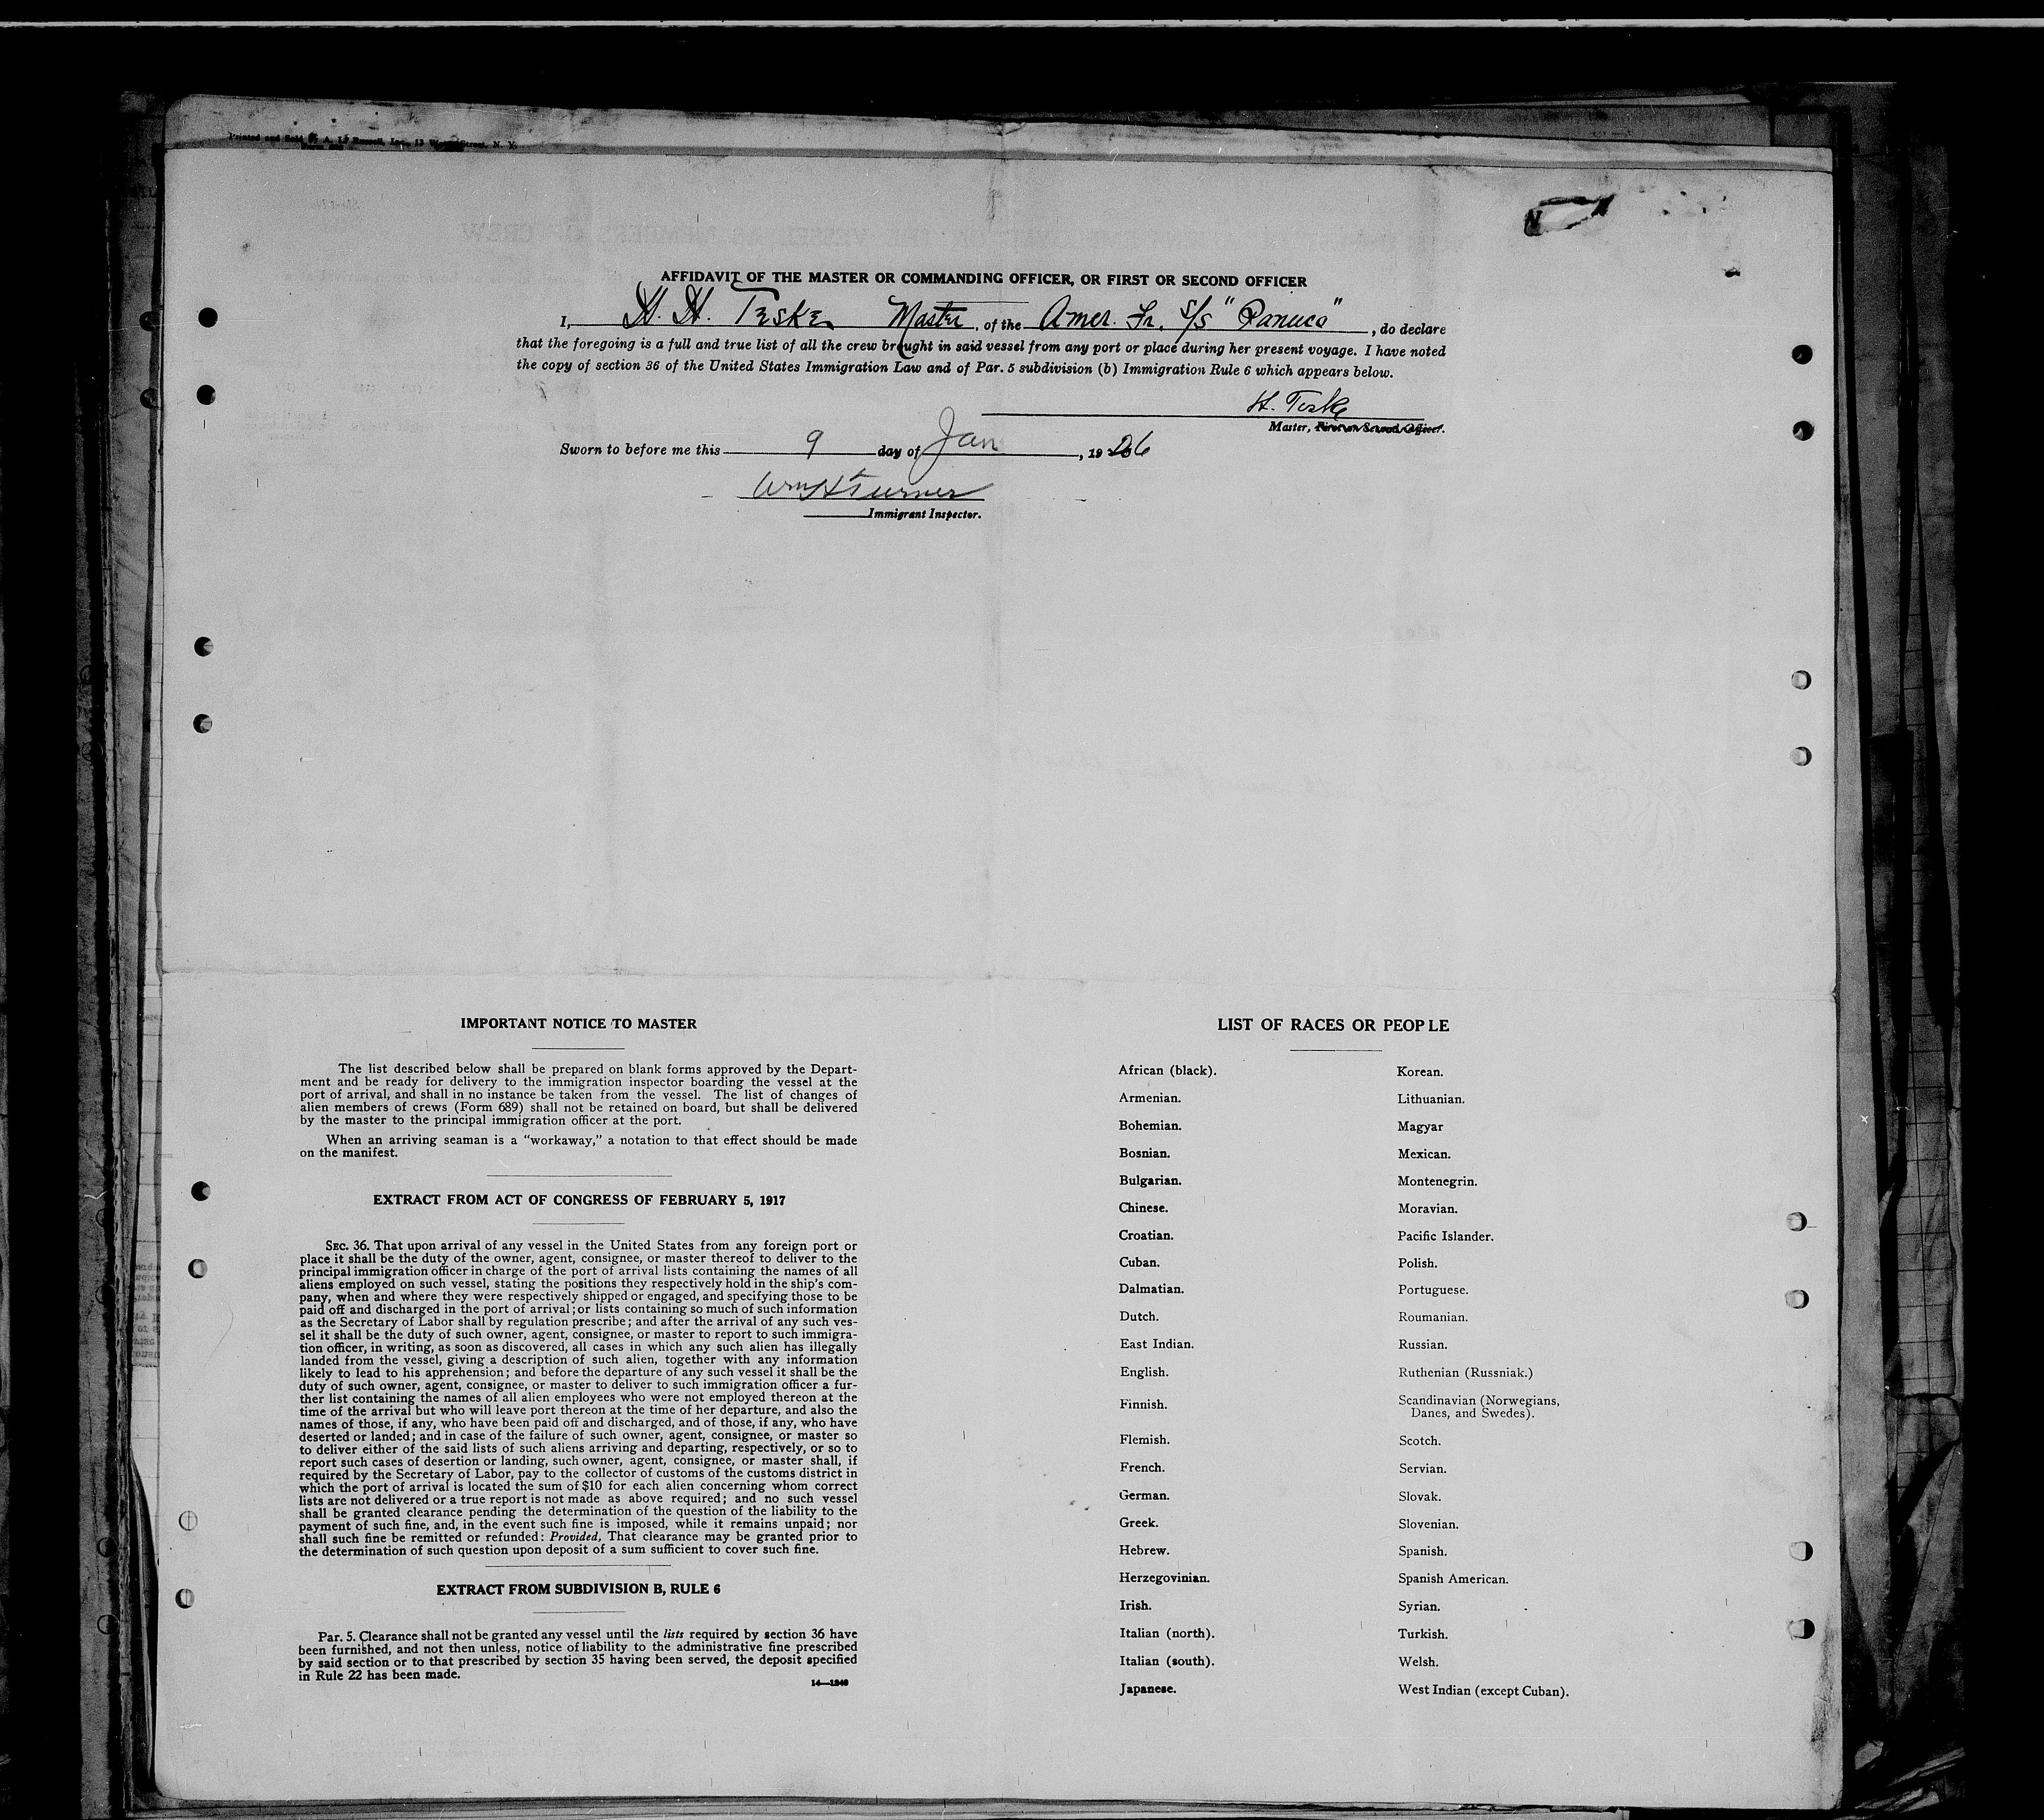 Printed and Sold by A. L. Russell, Inc., 13 Water Street, N. Y.
AFFIDAVIT OF THE MASTER OR COMMANDING OFFICER, OR FIRST OR SECOND OFFICER
I, H. H. Teske Master, of the Amer. Fr. S/S "Panuco", do declare
that the foregoing is a full and true list of all the crew brought in said vessel from any port or place during her present voyage. I have noted
the copy of section 36 of the United States Immigration Law and of Par. 5 subdivision (b) Immigration Rule 6 which appears below.
H. Teske
Master, First or Second Officer.
Sworn to before me this 9 day of Jan, 1926
Wm H Turner
Immigrant Inspector.
IMPORTANT NOTICE TO MASTER
The list described below shall be prepared on blank forms approved by the Depart-
ment and be ready for delivery to the immigration inspector boarding the vessel at the
port of arrival, and shall in no instance be taken from the vessel. The list of changes of
alien members of crews (Form 689) shall not be retained on board, but shall be delivered
by the master to the principal immigration officer at the port.
When an arriving seaman is a "workaway," a notation to that effect should be made
on the manifest.
EXTRACT FROM ACT OF CONGRESS OF FEBRUARY 5, 1917
SEC. 36. That upon arrival of any vessel in the United States from any foreign port or
place it shall be the duty of the owner, agent, consignee, or master thereof to deliver to the
principal immigration officer in charge of the port of arrival lists containing the names of all
aliens employed on such vessel, stating the positions they respectively hold in the ship's com-
pany, when and where they were respectively shipped or engaged, and specifying those to be
paid off and discharged in the port of arrival; or lists containing so much of such information
as the Secretary of Labor shall by regulation prescribe; and after the arrival of any such ves-
sel it shall be the duty of such owner, agent, consignee, or master to report to such immigra-
tion officer, in writing, as soon as discovered, all cases in which any such alien has illegally
landed from the vessel, giving a description of such alien, together with any information
likely to lead to his apprehension; and before the departure of any such vessel it shall be the
duty of such owner, agent, consignee, or master to deliver to such immigration officer a fur-
ther list containing the names of all alien employees who were not employed thereon at the
time of the arrival but who will leave port thereon at the time of her departure, and also the
names of those, if any, who have been paid off and discharged, and of those, if any, who have
deserted or landed; and in case of the failure of such owner, agent, consignee, or master so
to deliver either of the said lists of such aliens arriving and departing, respectively, or so to
report such cases of desertion or landing, such owner, agent, consignee, or master shall, if
required by the Secretary of Labor, pay to the collector of customs of the customs district in
which the port of arrival is located the sum of $10 for each alien concerning whom correct
lists are not delivered or a true report is not made as above required; and no such vessel
shall be granted clearance pending the determination of the question of the liability to the
payment of such fine, and, in the event such fine is imposed, while it remains unpaid; nor
shall such fine be remitted or refunded: Provided, That clearance may be granted prior to
the determination of such question upon deposit of a sum sufficient to cover such fine.
EXTRACT FROM SUBDIVISION B, RULE 6
Par. 5. Clearance shall not be granted any vessel until the lists required by section 36 have
been furnished, and not then unless, notice of liability to the administrative fine prescribed
by said section or to that prescribed by section 35 having been served, the deposit specified
in Rule 22 has been made.
14—1240
LIST OF RACES OR PEOPLE
African (black).
Armenian.
Bohemian.
Bosnian.
Bulgarian.
Chinese.
Croatian.
Cuban.
Dalmatian.
Dutch.
East Indian.
English.
Finnish.
Flemish.
French.
German.
Greek.
Hebrew.
Herzegovinian.
Irish.
Italian (north).
Italian (south).
Japanese.
Korean.
Lithuanian.
Magyar
Mexican.
Montenegrin.
Moravian.
Pacific Islander.
Polish.
Portuguese.
Roumanian.
Russian.
Ruthenian (Russniak.)
Scandinavian (Norwegians,
Danes, and Swedes).
Scotch.
Servian.
Slovak.
Slovenian.
Spanish.
Spanish American.
Syrian.
Turkish.
Welsh.
West Indian (except Cuban).